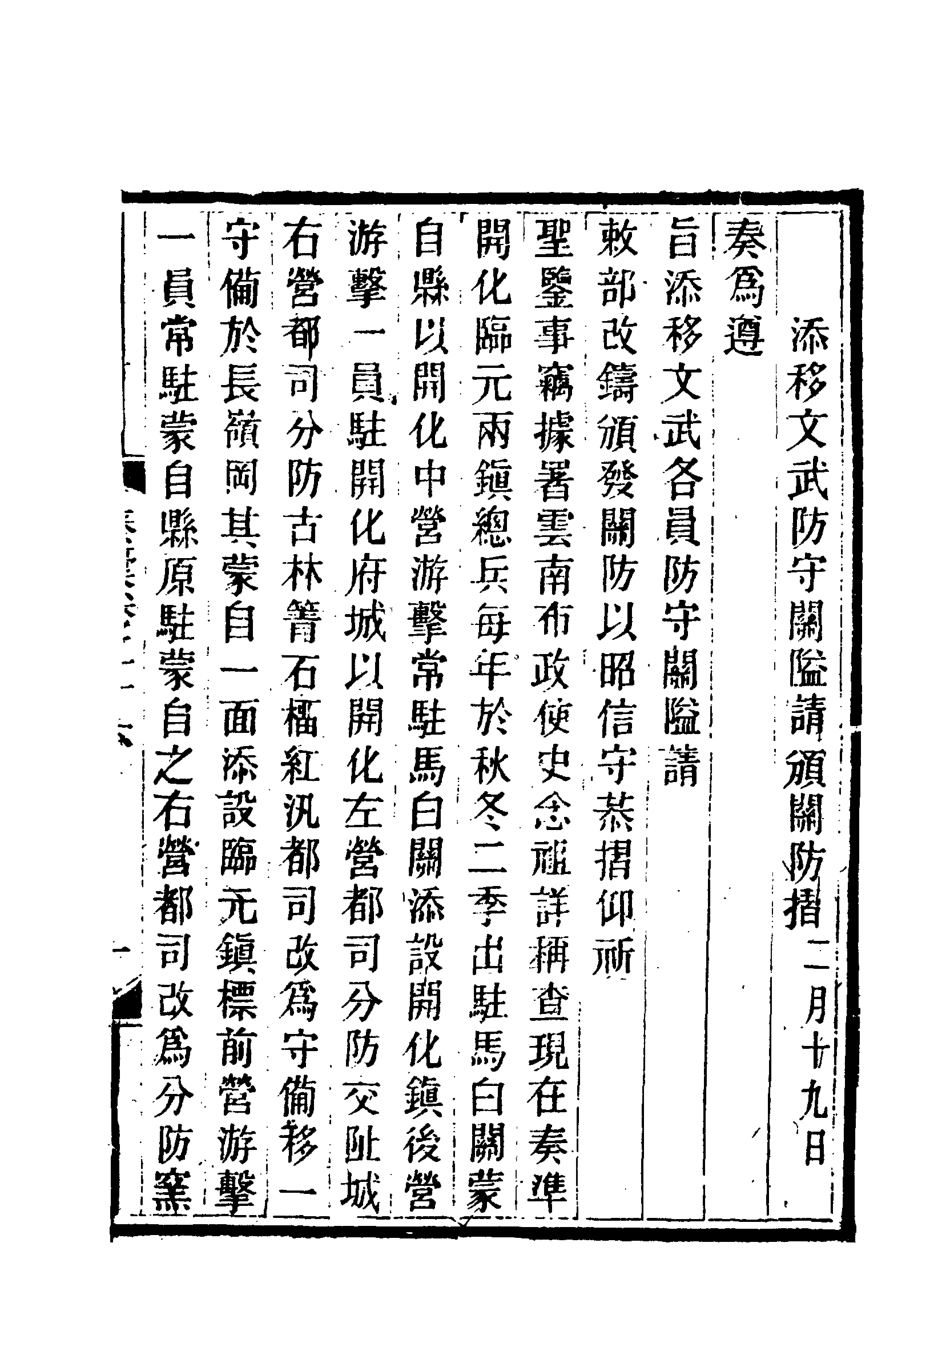 添移文武防守關隘請頒關防摺二月十九日
奏爲遵
旨添移文武各員防守關隘請
敕部改鑄頒發關防以昭信守恭摺仰祈
聖鑒事竊據署雲南布政使史念祖詳稱查現在奏準
開化臨元兩鎮總兵每年於秋冬二季出駐馬白關蒙
自縣以開化中營游擊常駐馬白關添設開化鎮後營
游擊一員駐開化府城以開化左營都司分防交阯城
右營都司分防古林箐石榴紅汛都司改爲守備移一
守備於長嶺岡其蒙自一面添設臨元鎮標前營游擊
一員常駐蒙自縣原駐蒙自之右營都司改爲分防窯